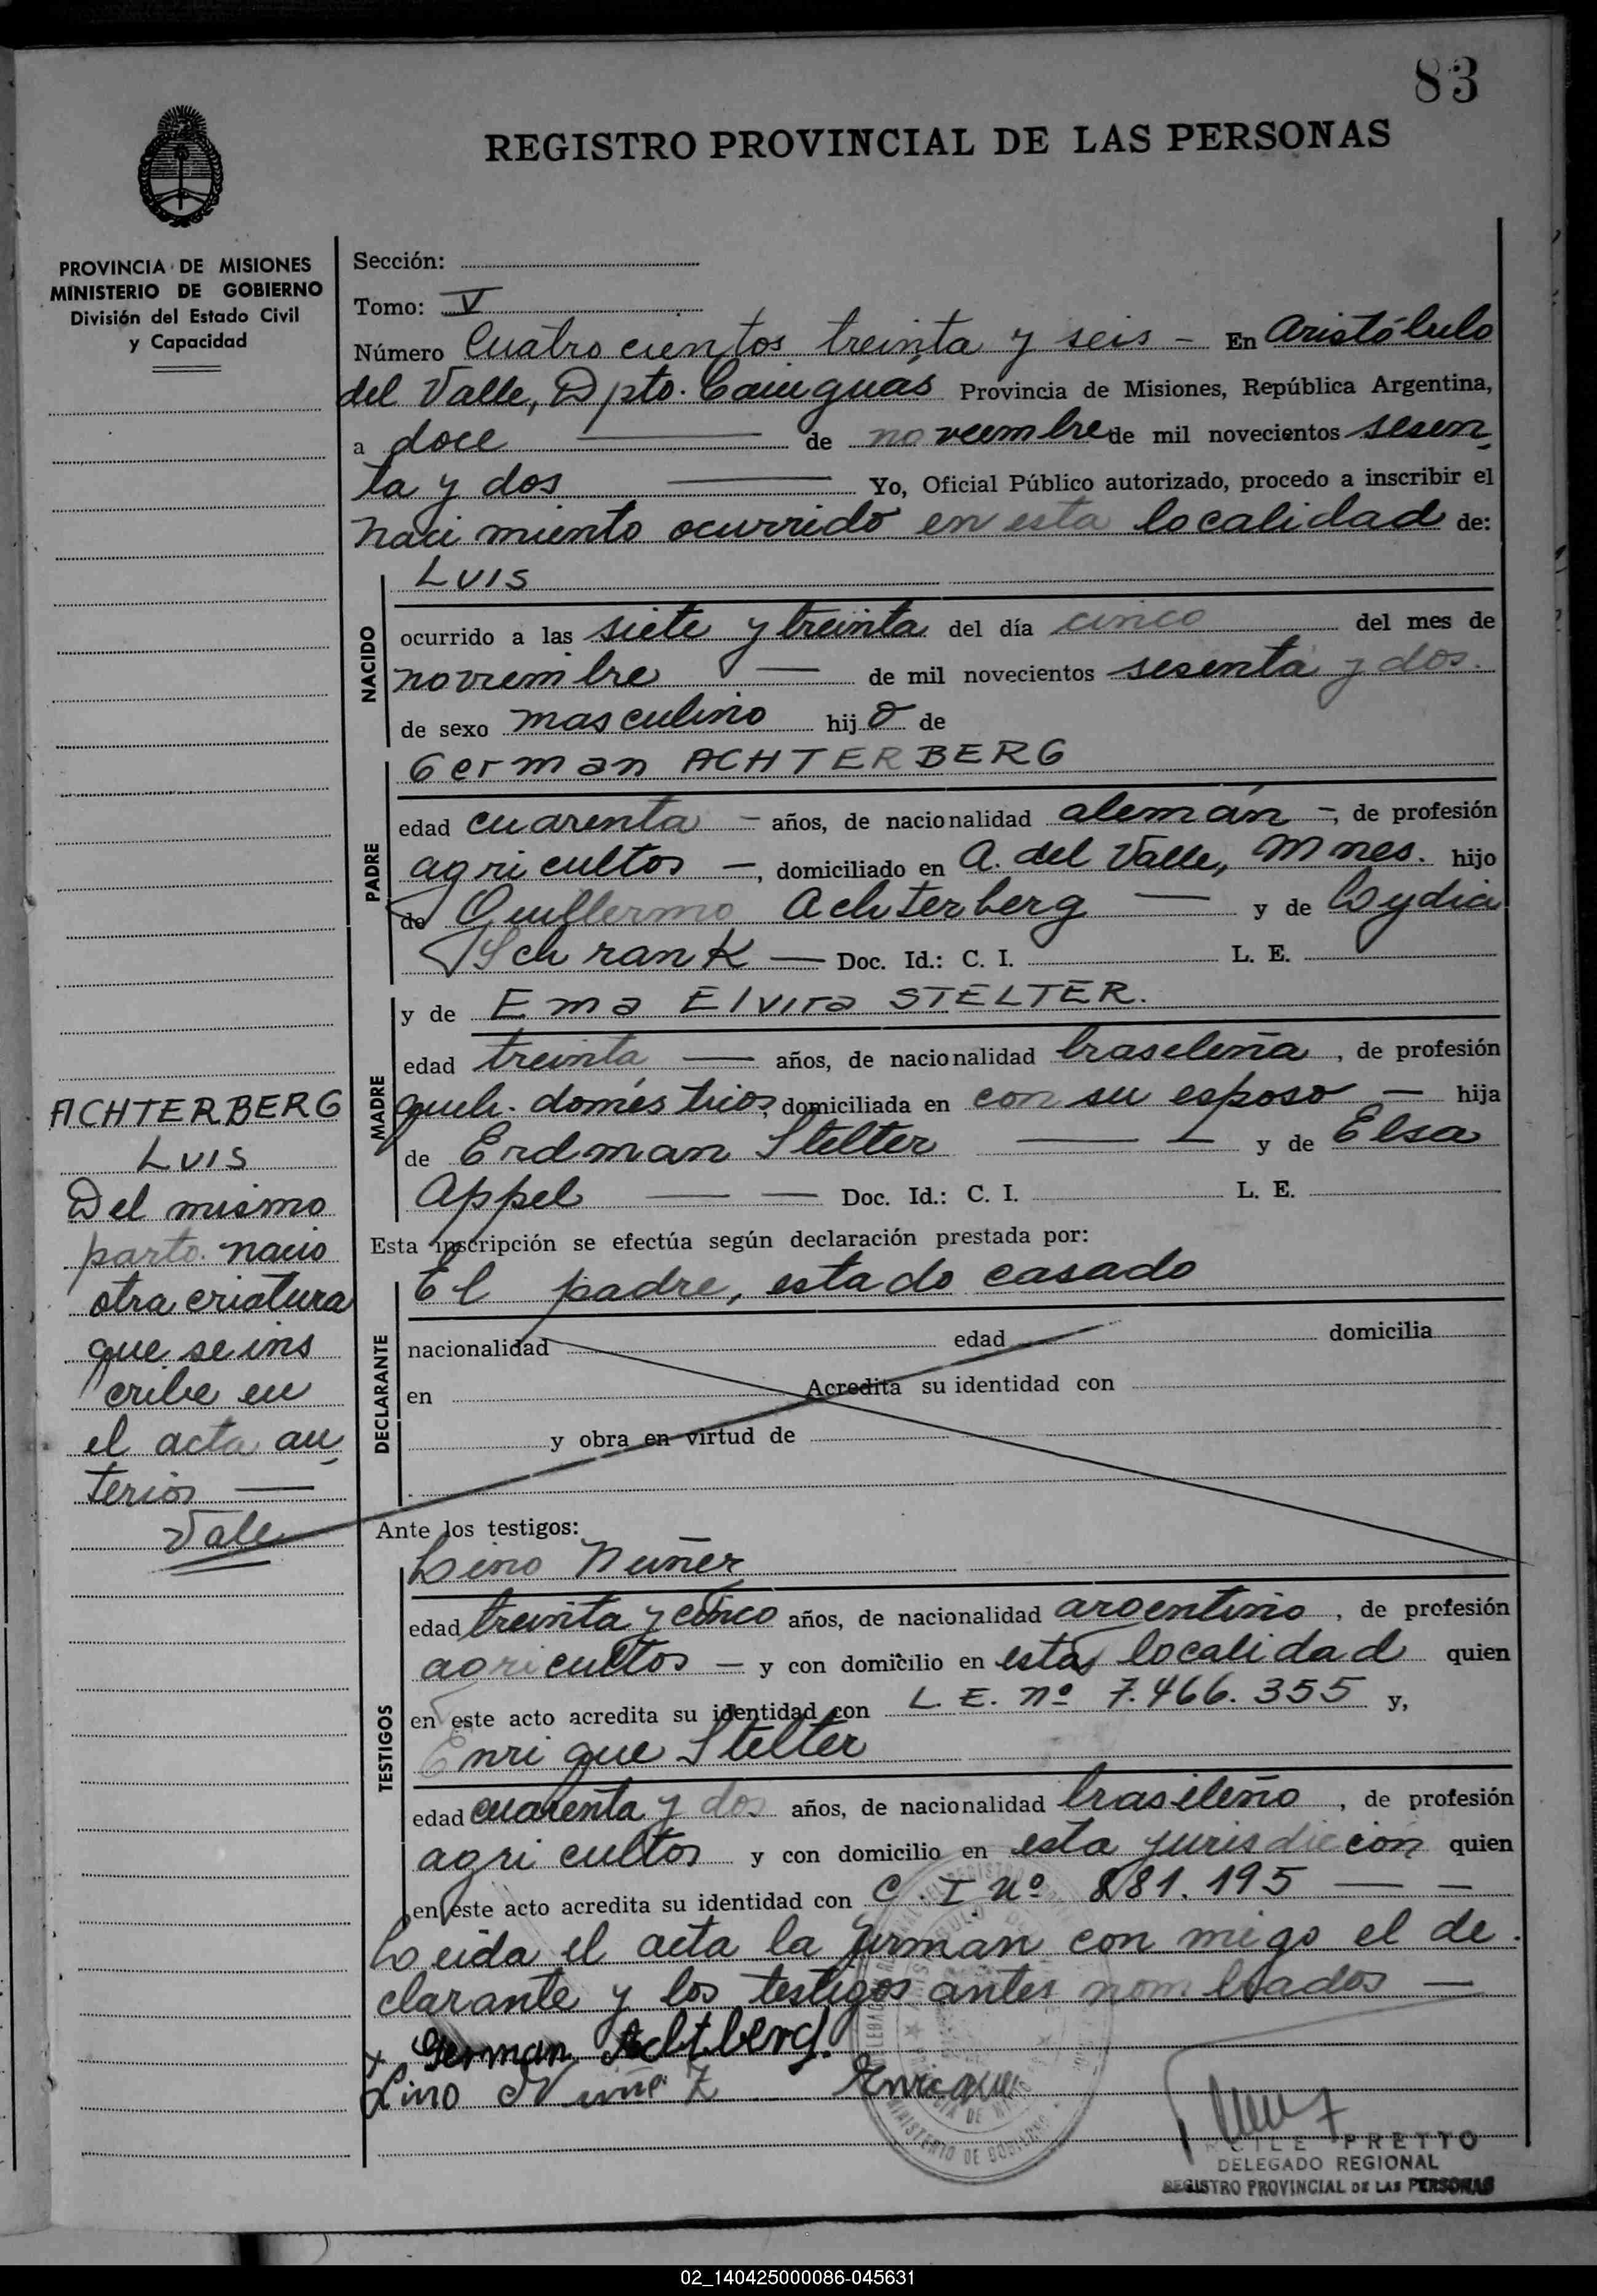 83
REGISTRO PROVINCIAL DE LAS PERSONAS
PROVINCIA DE MISIONES
MINISTERIO DE GOBIERNO
División del Estado Civil
y Capacidad
ACHTERBERG
LUIS
Del mismo
parto nacio
otra criatura
que se ins
cribe en
el acta an
terior —
Vale
Sección:
Tomo: V
Número Cuatrocientos treinta y seis - En Aristóbulo
del Valle, Dpto. Cainguás Provincia de Misiones, República Argentina,
a doce — de noviembre de mil novecientos sesen
ta y dos — Yo, Oficial Público autorizado, procedo a inscribir el
nacimiento ocurrido en esta localidad de:
NACIDO
LUIS
ocurrido a las siete y treinta del día cinco del mes de
noviembre — de mil novecientos sesenta y dos.
de sexo masculino hijo de
PADRE
German ACHTERBERG
edad cuarenta - años, de nacionalidad alemán -, de profesión
agricultor -, domiciliado en A. del Valle, Mnes. hijo
de Guillermo Achterberg — y de Lydia
Schrank — Doc. Id.: C. I. L. E.
MADRE
y de Ema Elvira STELTER.
edad treinta — años, de nacionalidad brasileña, de profesión
queh. domésticos, domiciliada en con su esposo — hija
de Erdman Stelter — — y de Elsa
Appel — — Doc. Id.: C. I. L. E.
Esta inscripción se efectúa según declaración prestada por:
DECLARANTE
El padre, estado casado
nacionalidad edad domicilia
en Acredita su identidad con
y obra en virtud de
Ante los testigos:
TESTIGOS
Lino Nuñez
edad treinta y cinco años, de nacionalidad argentino, de profesión
agricultor - y con domicilio en esta localidad quien
en este acto acredita su identidad con L. E. nº 7.466.355 y,
Enrique Stelter
edad cuarenta y dos años, de nacionalidad brasileño, de profesión
agricultor y con domicilio en esta jurisdicion quien
en este acto acredita su identidad con C. I. Nº 881.195 — —
Leida el acta la firman con migo el de
clarante y los testigos antes nombrados —
German Achtberg.
Lino Nuñez Enrique
PRETTO
DELEGADO REGIONAL
REGISTRO PROVINCIAL DE LAS PERSONAS
MINISTERIO DE GOBIERNO
02_140425000086-045631